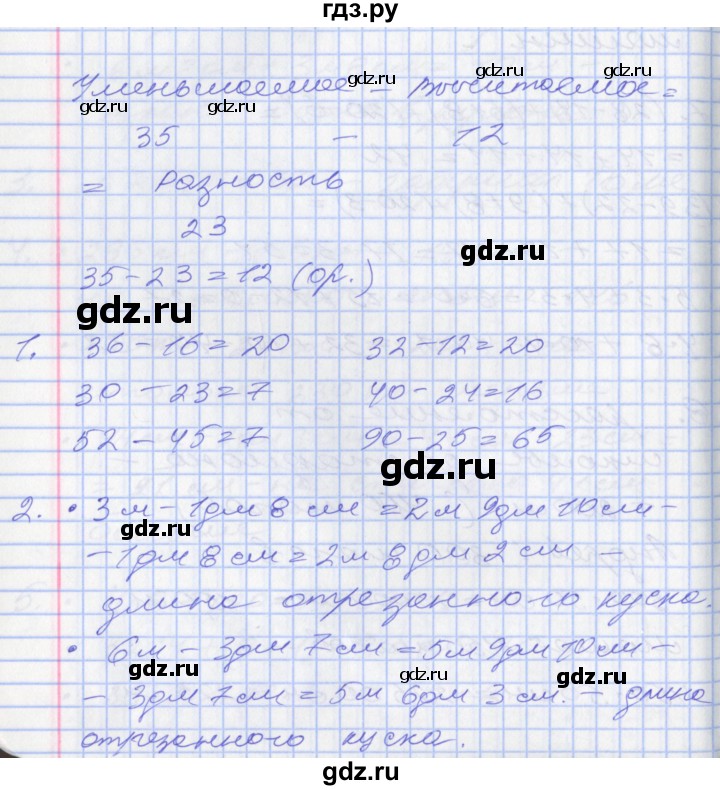 гдз.ру
Уменьшаемое – вычитаемое =
gdz.ru
gdz.ru gdz.ru gdz.ru
35 – 12
= разность
23
gdz.ru
35-23=12 (ор.)
gdz.ru
1. 36-16=20 32-12=20
30-23=7 40-24=16
52-45=7 90-25=65
gdz.ru
2. • 3 м - 1 дм 8 см = 2 м 9 дм 10 см -
gdz.ru
- 1 дм 8 см = 2 м 8 дм 2 см –
длина отрезанного куска.
• 6 м - 3 дм 7 см = 5 м 9 дм 10 см -
gdz.ru gdz.ru gdz.ru
- 3 дм 7 см = 5 м 6 дм 3 см. – длина
отрезанного куска.
gdz.ru